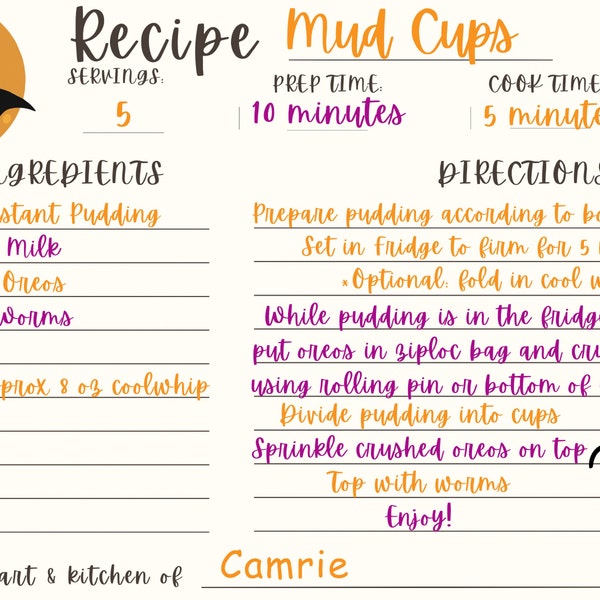 Recipe Mud Cups
SERVINGS: PREP TIME: COOK TIME
5 10 minutes 5 minute
INGREDIENTS DIRECTIONS
stant Pudding
Milk
Oreos
Worms
prox 8 oz coolwhip
Prepare pudding according to bo
Set in Fridge to firm for 5
*Optional: fold in cool w
While pudding is in the fridge
put oreos in ziploc bag and cru
using rolling pin or bottom of
Divide pudding into cups
Sprinkle crushed oreos on top
Top with worms
Enjoy!
art & kitchen of Camrie